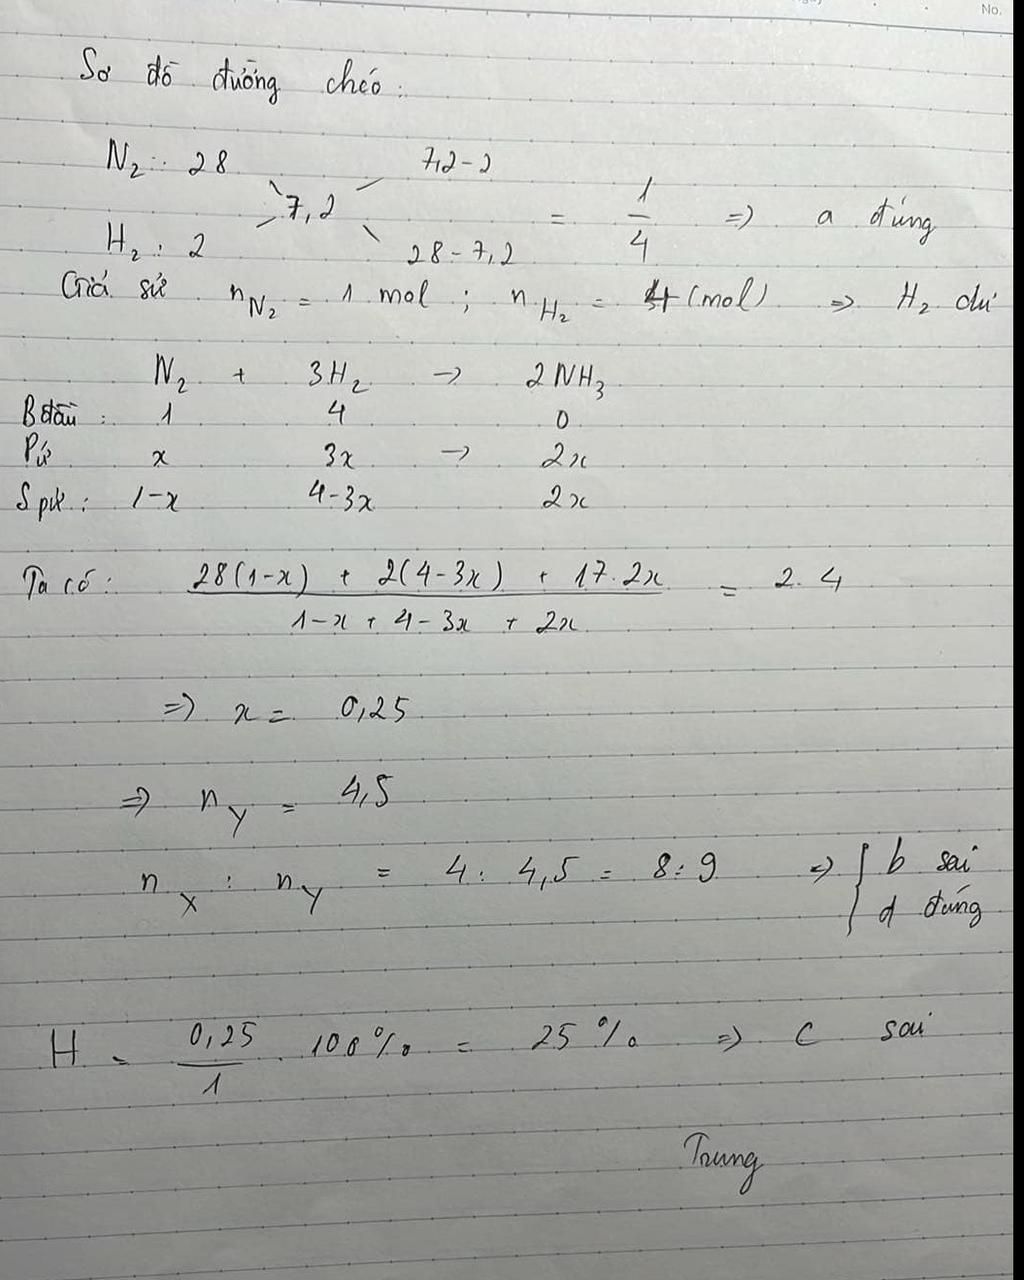 No.
Sơ đồ đường chéo:
N₂: 28 7,2-2
7,2 = 1/4 => a đúng
H₂: 2 28-7,2
Giả sử n_N₂ = 1 mol ; n_H₂ = 4 (mol) => H₂ dư
N₂ + 3H₂ → 2NH₃
Bđầu: 1 4 0
Pứ x 3x → 2x
Spứ: 1-x 4-3x 2x
Ta có: (28(1-x) + 2(4-3x) + 17.2x)/(1-x + 4-3x + 2x) = 2.4
=> x = 0,25
=> n_Y = 4,5
n_X : n_Y = 4: 4,5 = 8:9 => { b sai
d đúng
H = 0,25/1 . 100% = 25% => c sai
Trung